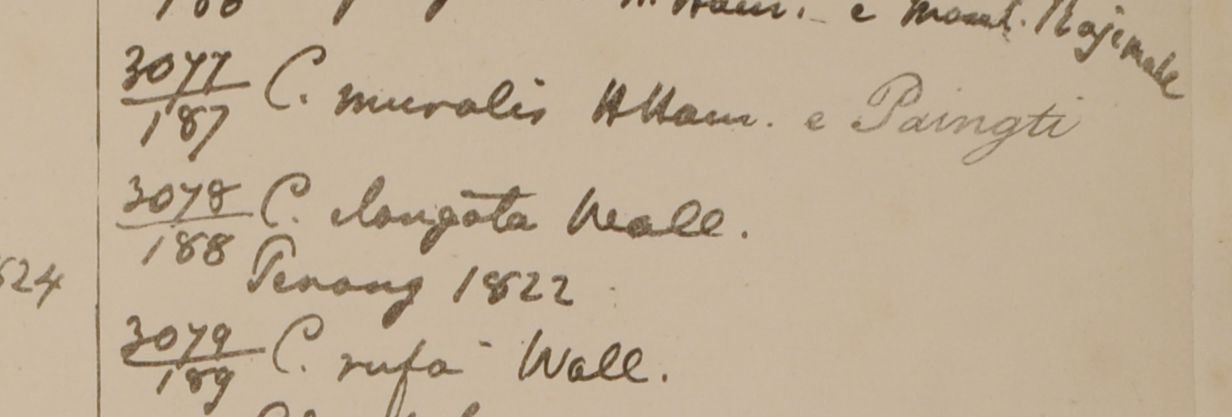 H. Ham. e Mont. Rajemale
3077/187 C. muralis HHam. e Paingti
3078/188 C. elongata Wall.
Penang 1822
624
3079/189 C. rufa Wall.